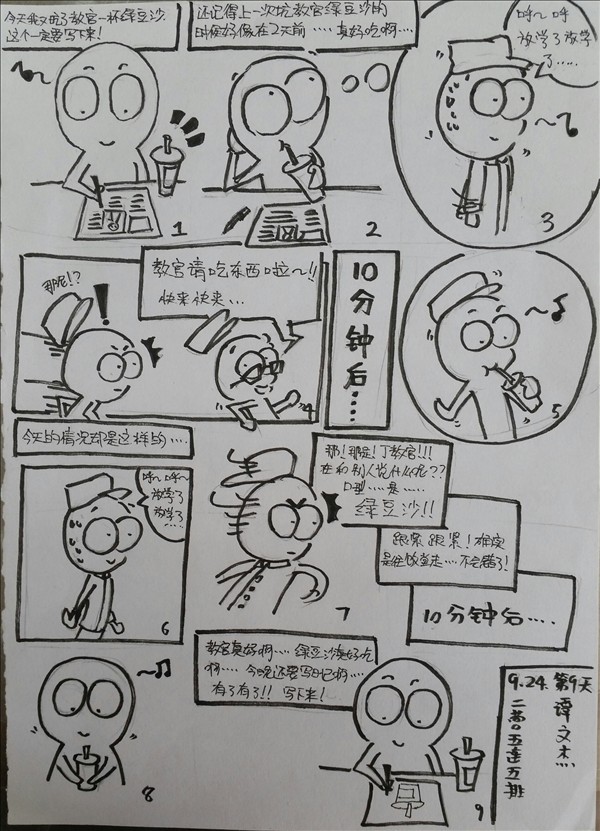 今天我又吃了教官一杯绿豆沙.
这个一定要写下来!
还记得上一次吃教官绿豆沙的
时候好像在2天前....真好吃啊....
1
2
呼~呼
放学了放学
了.....
3
那呢!?
教官请吃东西啦~!!
快来快来...
4
10分钟后....
5
今天的情况却是这样的....
呼~呼~
放学了
放学了...
6
那!那是!丁教官!!!
在和别人说什么呢??
口型.....是.....
绿豆沙!!
7
跟紧跟紧!确实
是往饭堂走....不会错了!
10分钟后....
8
教官真好啊.....绿豆沙真好吃
啊.... 今晚还要写日记啊....
有了有了!! 写下来!
9
9.24.第9天
谭文杰
五连五排